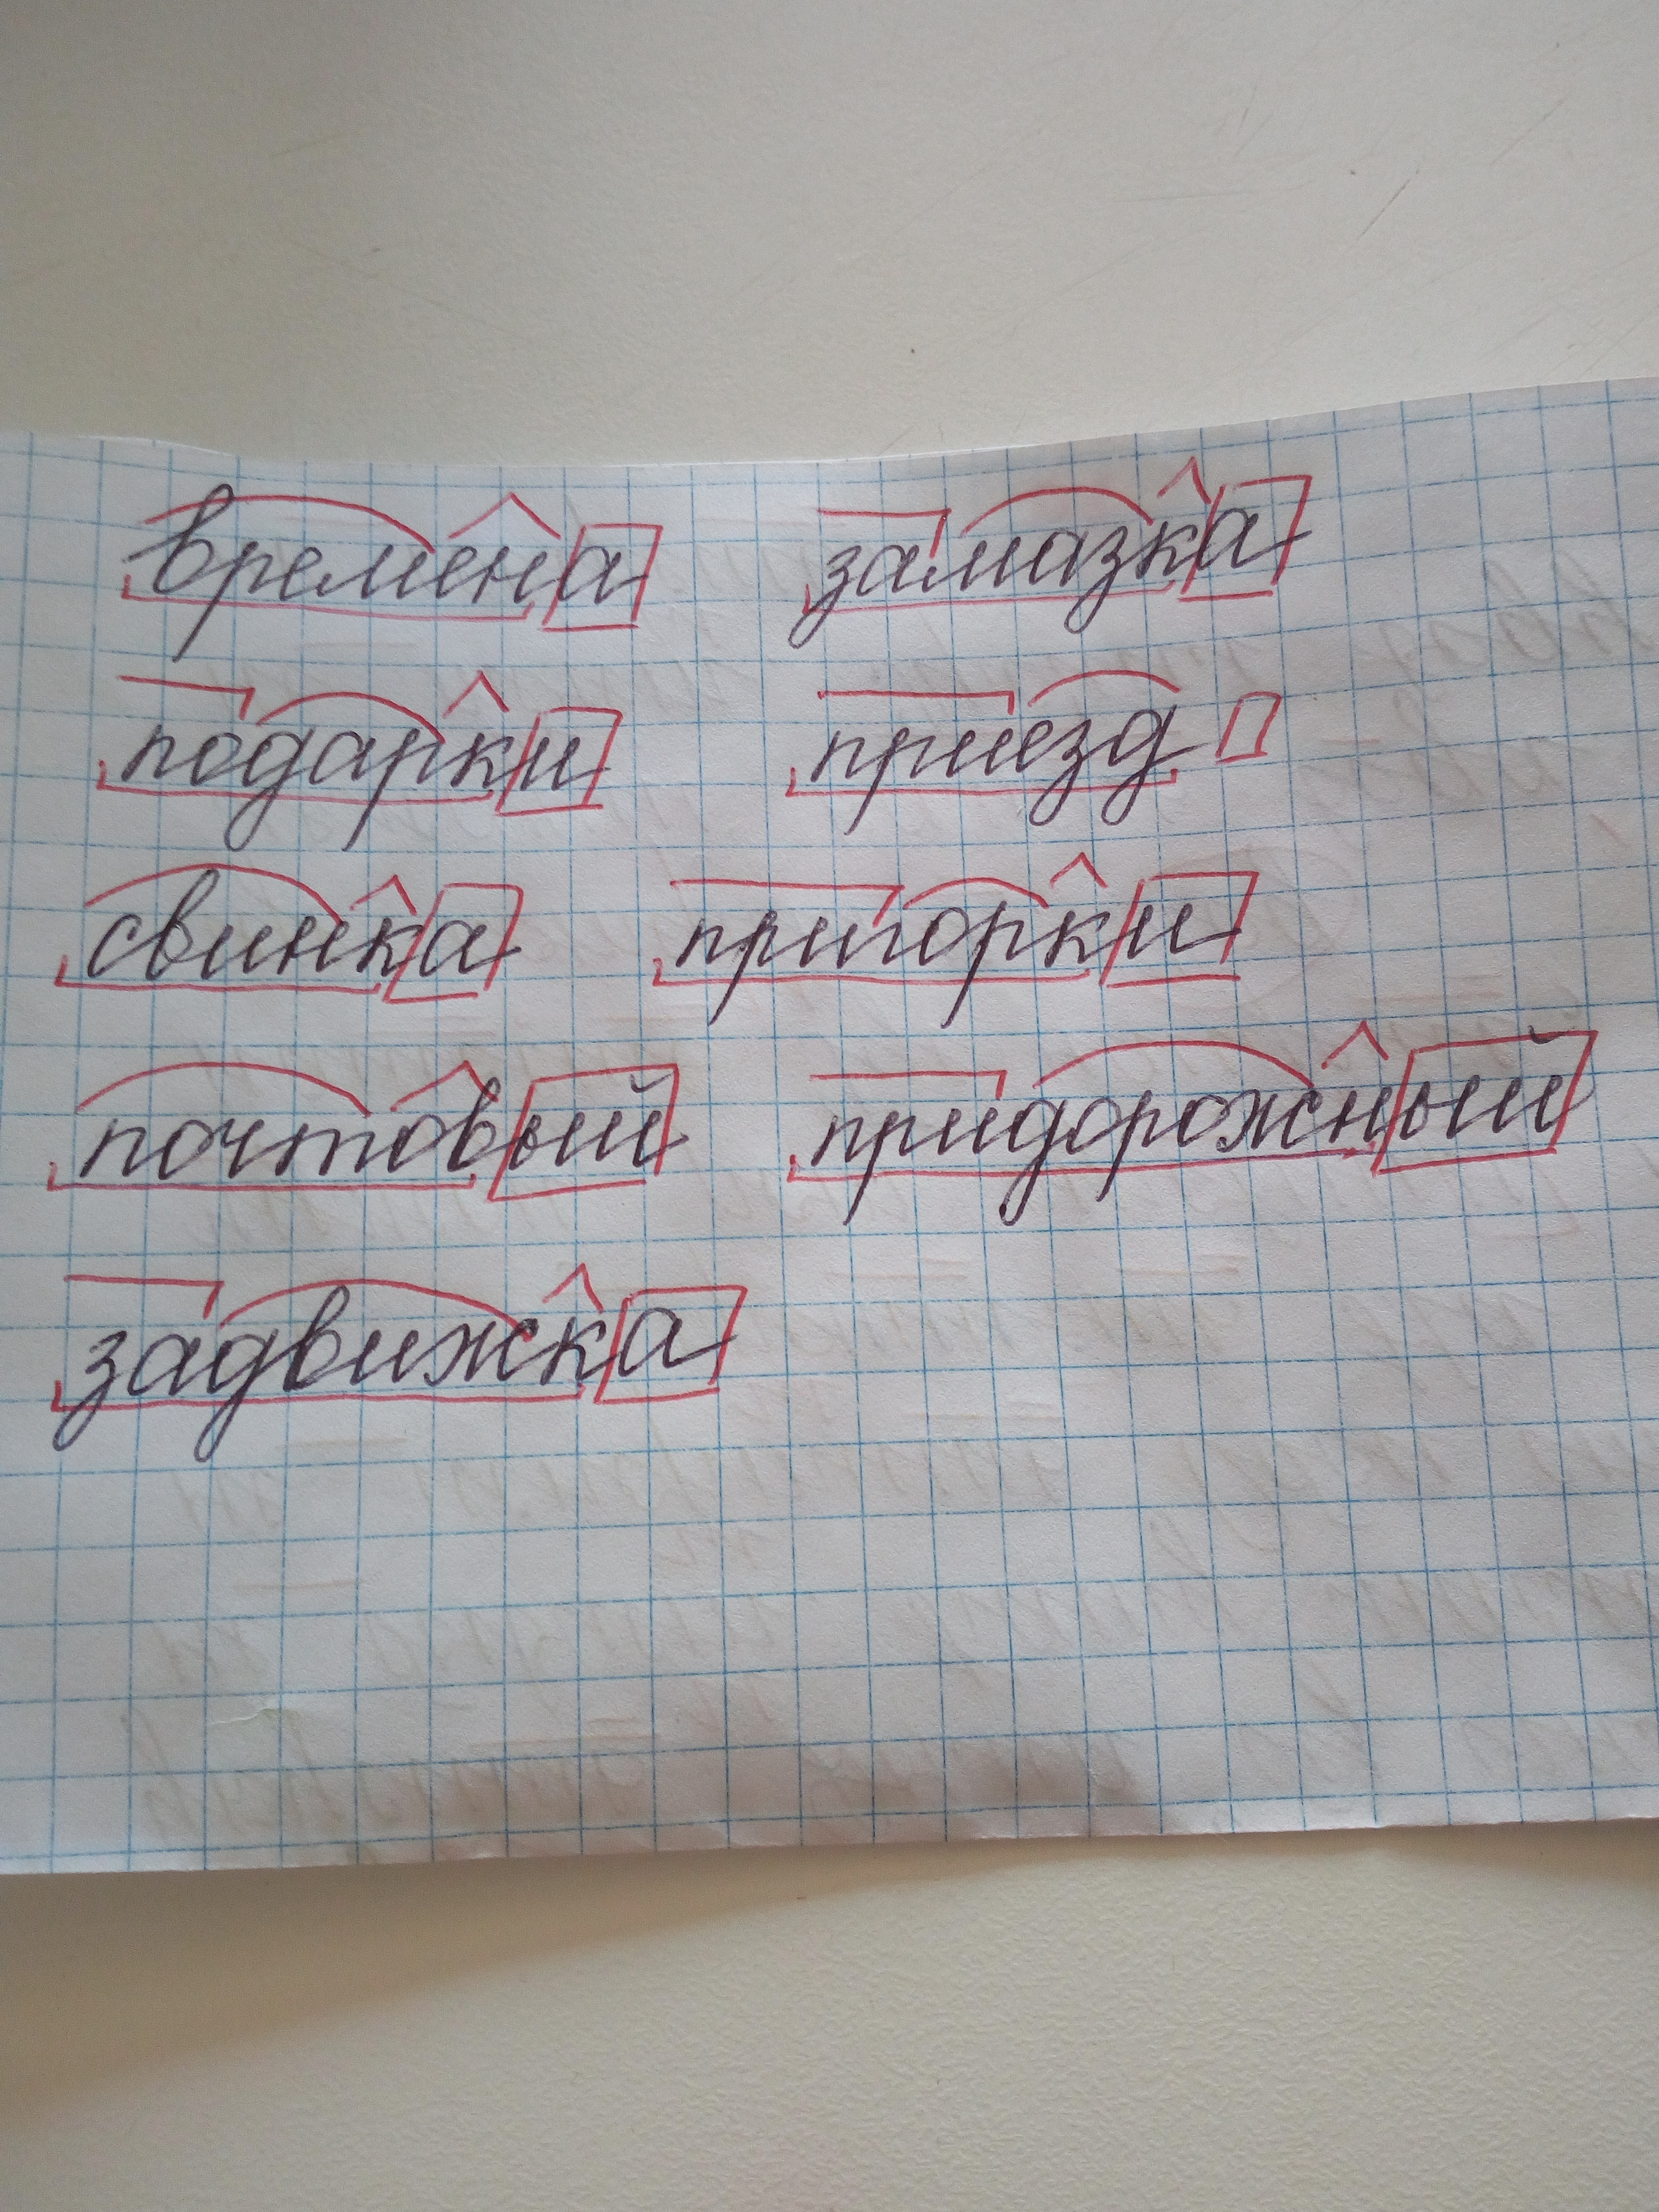 времена замазка
подарки приезд
свинка пригорки
почтовый придорожный
задвижка